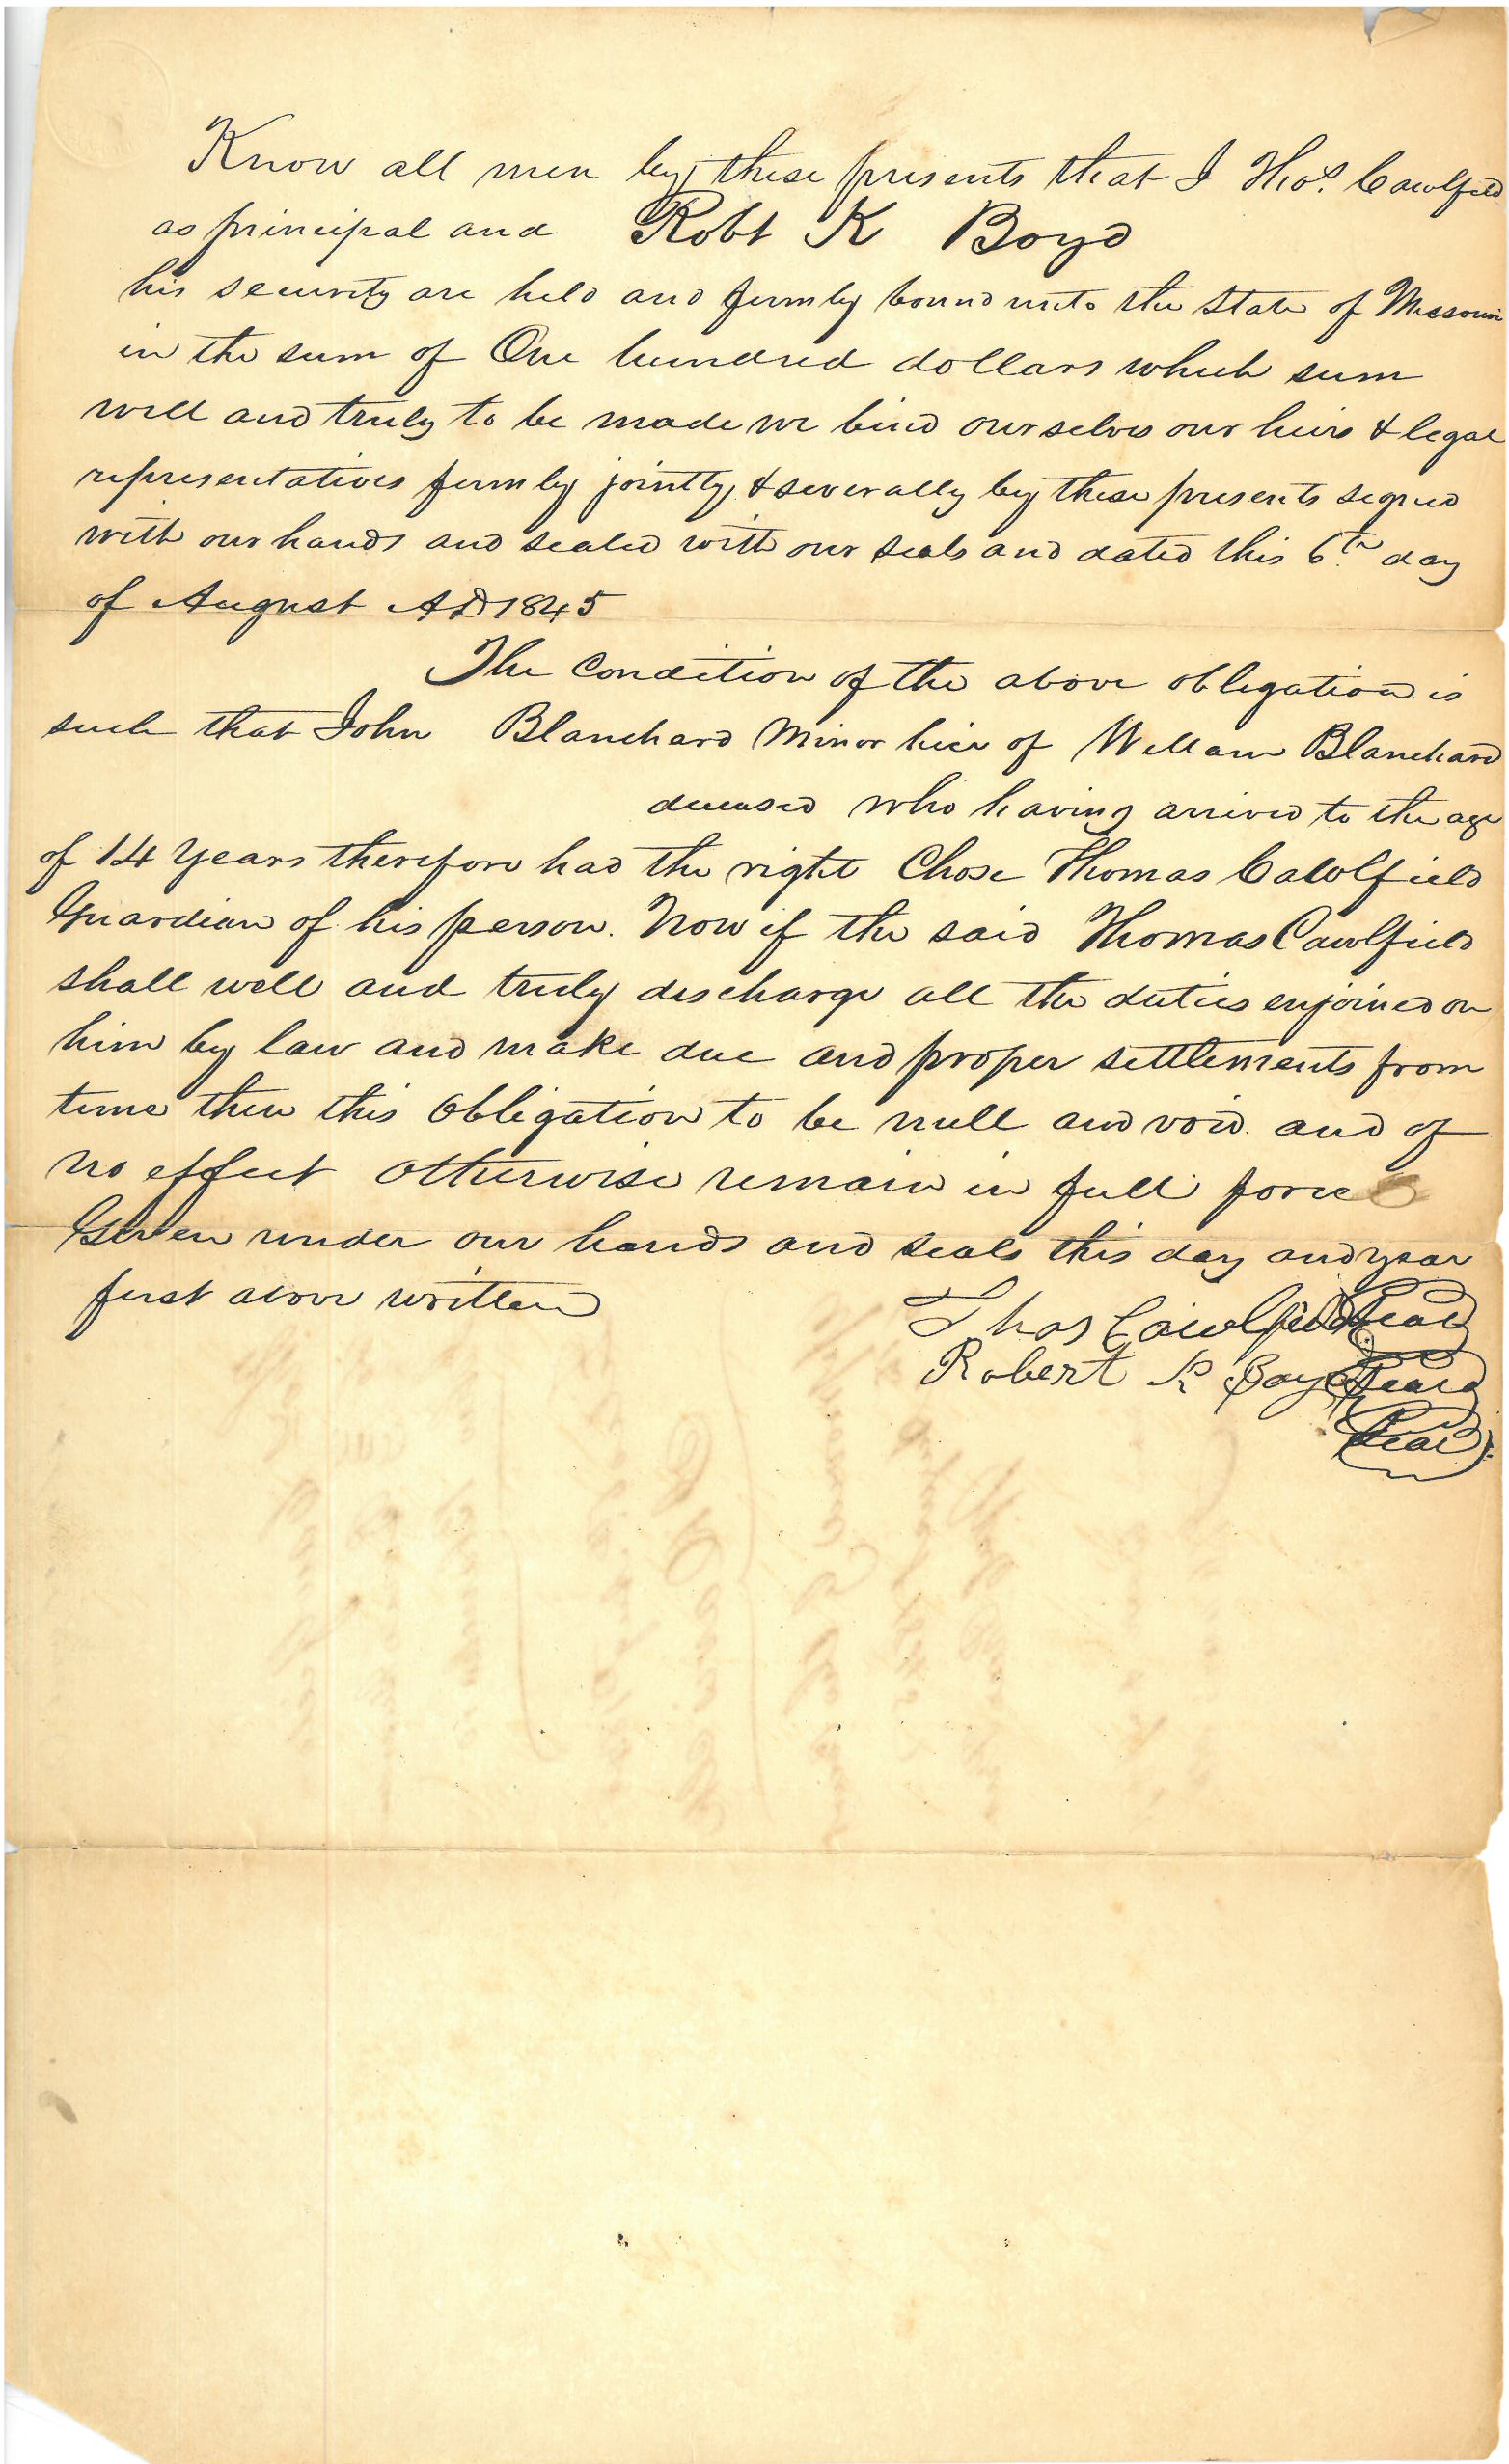 Know all men by these presents that I Thos. Cawlfield
as principal and Robt K Boyd
his security are held and firmly bound unto the State of Missouri
in the sum of One hundred dollars which sum
well and truly to be made we bind ourselves our heirs & legal
representatives firmly jointly & severally by these presents signed
with our hands and sealed with our seals and dated this 6th day
of August AD 1845
The Condition of the above obligation is
such that John Blanchard Minor heir of William Blanchard
deceased who having arrived to the age
of 14 years therefore had the right Chose Thomas Cawlfield
Guardian of his person. Now if the said Thomas Cawlfield
shall well and truly discharge all the duties enjoined on
him by law and make due and proper settlements from
time then this Obligation to be null and void and of
no effect Otherwise remain in full force
Given under our hands and seals this day and year
first above written
Thos Cawlfield Seal
Robert K Boyd Seal
Seal